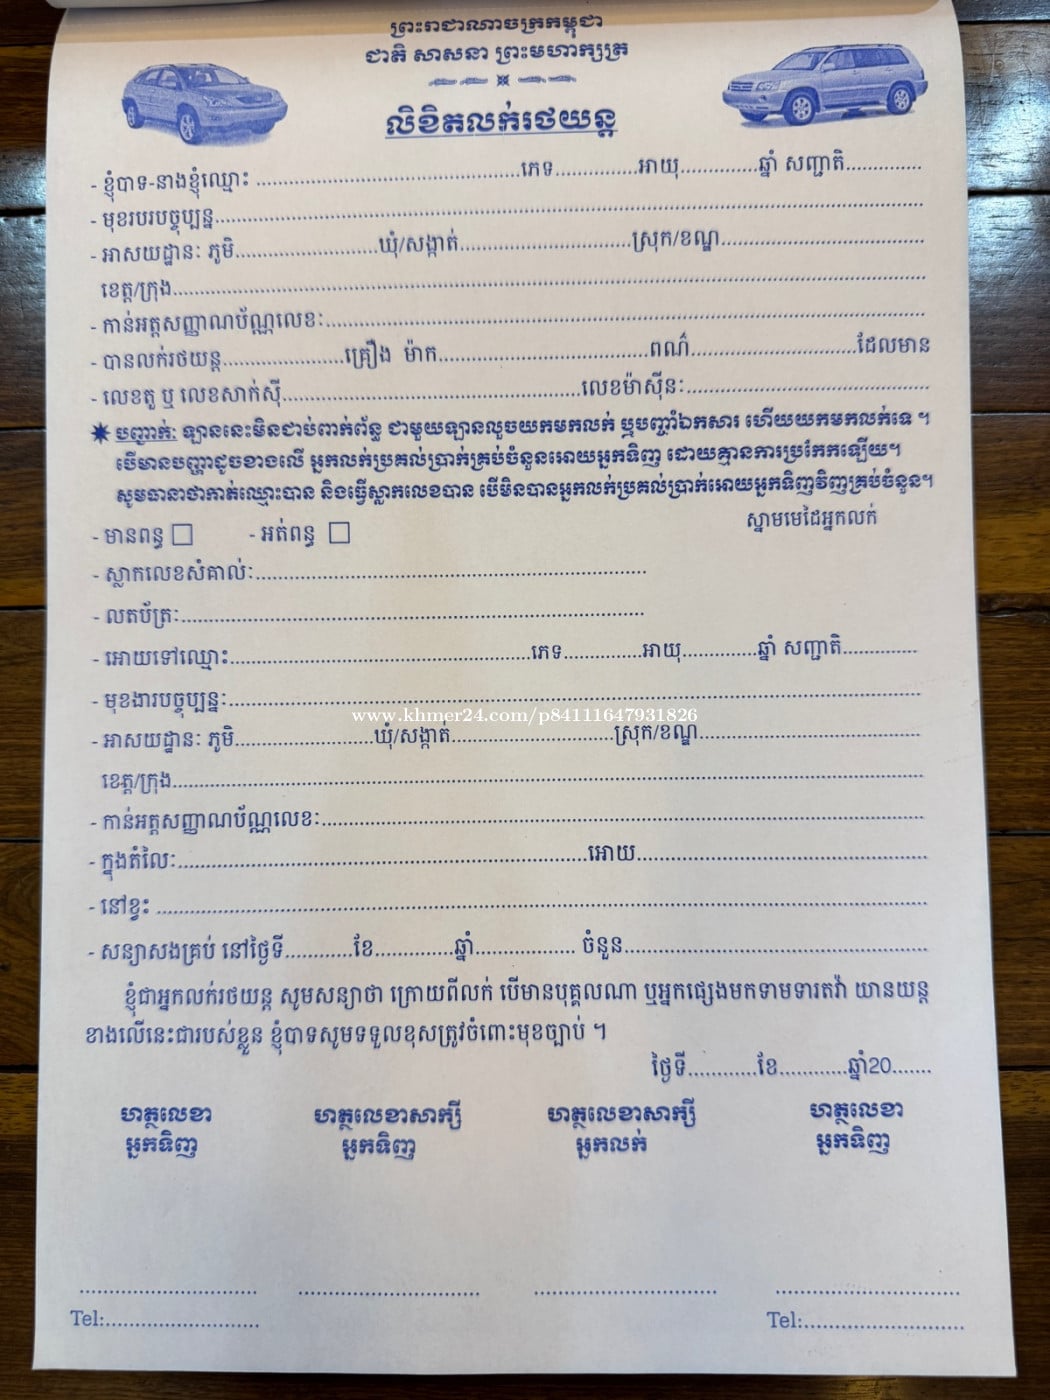 ព្រះរាជាណាចក្រកម្ពុជា
ជាតិ សាសនា ព្រះមហាក្សត្រ
លិខិតលក់រថយន្ត
- ខ្ញុំបាទ-នាងខ្ញុំឈ្មោះ ........................ភេទ...............អាយុ..............ឆ្នាំ សញ្ជាតិ..............
- មុខរបរបច្ចុប្បន្ន........................
- អាសយដ្ឋានៈ ភូមិ........................ឃុំ/សង្កាត់........................ស្រុក/ខណ្ឌ........................
ខេត្ត/ក្រុង........................
- កាន់អត្តសញ្ញាណប័ណ្ណលេខៈ........................
- បានលក់រថយន្ត........................គ្រឿង ម៉ាក........................ពណ៌........................ដែលមាន
- លេខតួ ឬ លេខសាក់ស៊ី........................លេខម៉ាស៊ីនៈ........................
បញ្ជាក់: ឡាននេះមិនជាប់ពាក់ព័ន្ធ ជាមួយឡានលួចយកមកលក់ ឬបញ្ចាំឯកសារ ហើយយកមកលក់ទេ ។
បើមានបញ្ហាដូចខាងលើ អ្នកលក់ប្រគល់ប្រាក់គ្រប់ចំនួនអោយអ្នកទិញ ដោយគ្មានការប្រកែកឡើយ។
សូមធានាថាកាត់ឈ្មោះបាន និងធ្វើស្លាកលេខបាន បើមិនបានអ្នកលក់ប្រគល់ប្រាក់អោយអ្នកទិញវិញគ្រប់ចំនួន។
- មានពន្ធ - អត់ពន្ធ ស្នាមមេដៃអ្នកលក់
- ស្លាកលេខសំគាល់ៈ........................
- លតប័ត្រៈ........................
- អោយទៅឈ្មោះ........................ភេទ..............អាយុ..............ឆ្នាំ សញ្ជាតិ..............
- មុខងារបច្ចុប្បន្នៈ........................
www.khmer24.com/p84111647931826
- អាសយដ្ឋានៈ ភូមិ........................ឃុំ/សង្កាត់........................ស្រុក/ខណ្ឌ........................
ខេត្ត/ក្រុង........................
- កាន់អត្តសញ្ញាណប័ណ្ណលេខៈ........................
- ក្នុងតំលៃៈ........................អោយ........................
- នៅខ្វះ ........................
- សន្យាសងគ្រប់ នៅថ្ងៃទី............ខែ..............ឆ្នាំ.................. ចំនួន........................
ខ្ញុំជាអ្នកលក់រថយន្ត សូមសន្យាថា ក្រោយពីលក់ បើមានបុគ្គលណា ឬអ្នកផ្សេងមកទាមទារតវ៉ា យានយន្ត
ខាងលើនេះជារបស់ខ្លួន ខ្ញុំបាទសូមទទួលខុសត្រូវចំពោះមុខច្បាប់ ។
ថ្ងៃទី............ខែ............ឆ្នាំ20.......
ហត្ថលេខា ហត្ថលេខាសាក្សី ហត្ថលេខាសាក្សី ហត្ថលេខា
អ្នកទិញ អ្នកទិញ អ្នកលក់ អ្នកទិញ
Tel:........................ Tel:........................